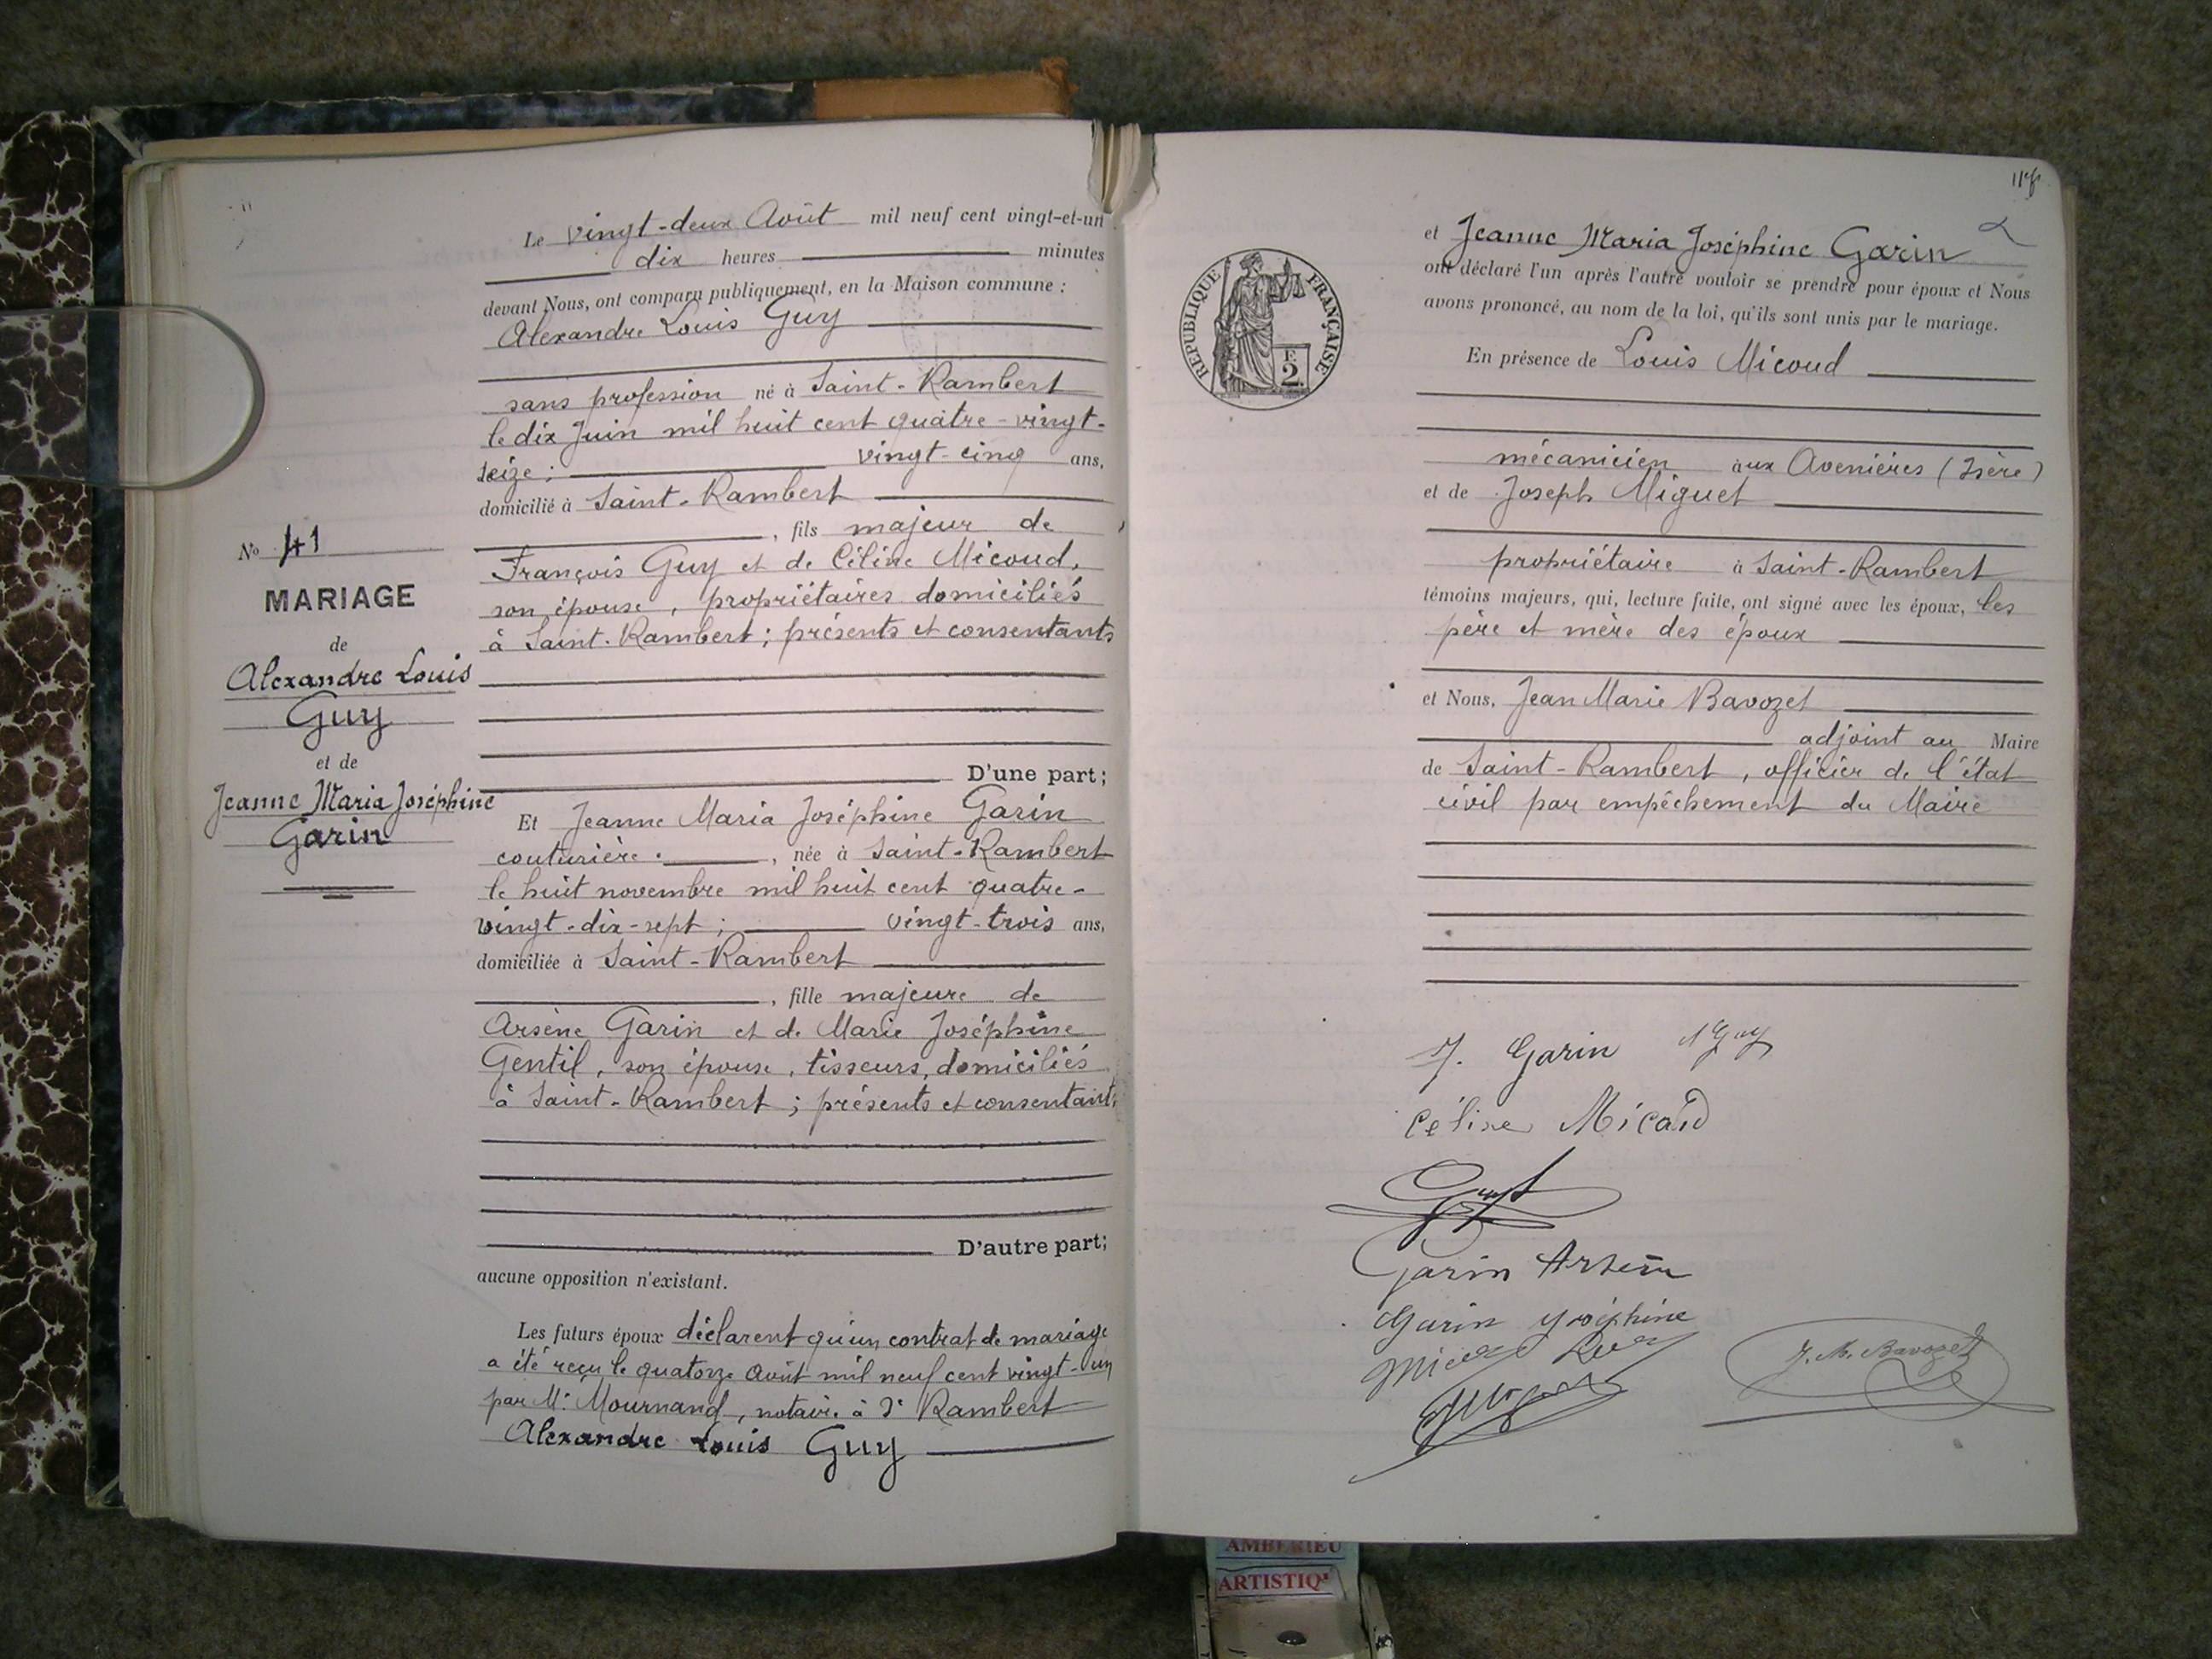 Le vingt-deux Août mil neuf cent vingt-et-un
dix heures minutes
devant Nous, ont comparu publiquement, en la Maison commune :
Alexandre Louis Guy
sans profession né à Saint-Rambert
le dix Juin mil huit cent quatre-vingt-
seize ; vingt-cinq ans,
domicilié à Saint-Rambert
, fils majeur de
François Guy et de Céline Micoud,
son épouse, propriétaires domiciliés
à Saint-Rambert ; présents et consentants
D'une part ;
Et Jeanne Maria Joséphine Garin
couturière. , née à Saint-Rambert
le huit novembre mil huit cent quatre-
vingt-dix-sept ; vingt-trois ans,
domiciliée à Saint-Rambert
, fille majeure de
Arsène Garin et de Marie Joséphine
Gentil, son épouse, tisseurs, domiciliés
à Saint-Rambert ; présents et consentants
D'autre part ;
aucune opposition n'existant.
Les futurs époux déclarent qu'un contrat de mariage
a été reçu le quatorze Août mil neuf cent vingt-un
par Me Mournand, notaire à St Rambert
Alexandre Louis Guy
No 41
MARIAGE
de
Alexandre Louis
Guy
et de
Jeanne Maria Joséphine
Garin
et Jeanne Maria Joséphine Garin
ont déclaré l'un après l'autre vouloir se prendre pour époux et Nous
avons prononcé, au nom de la loi, qu'ils sont unis par le mariage.
En présence de Louis Micoud
mécanicien aux Avenières (Isère)
et de Joseph Miguet
propriétaire à Saint-Rambert
témoins majeurs, qui, lecture faite, ont signé avec les époux, les
père et mère des époux
et Nous, Jean Marie Bavozet
adjoint au Maire
de Saint-Rambert, officier de l'état
civil par empêchement du Maire
RÉPUBLIQUE FRANÇAISE
F.
2.
J. Garin A Guy
Céline Micoud
Garin Arsène
Garin Joséphine
J. M. Bavozet
AMBERIEU
ARTISTIQ